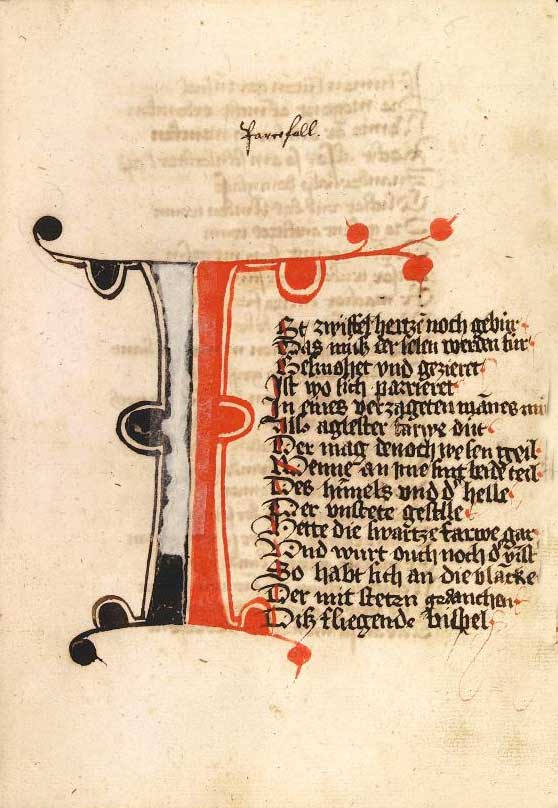 Parcefall.
I
St zwiffel hertzē noch gebur
Das muß der selen werden sur
Gesmohet vnd gezieret
Ist wo sich parrieret
In eines verzageten mānes mut
Als aglester farwe dut
Der mag denoch wesen geil
Wenne an yme sint beide teil
Des hȳmels vnd dᵉ helle
Der vnstete geselle
Hette die swartze farwe gar
Vnd wurt ouch noch dᵉ
So habt sich an die blancke
Der mit steten gedancken
Diß fliegende bispel